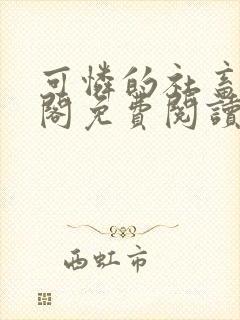 可憐的社畜
閣免費閱讀
西虹市